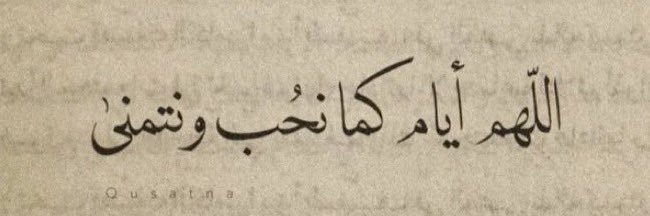 اللّهم أيام كما نحُب ونتمنىٰ
Qusatna